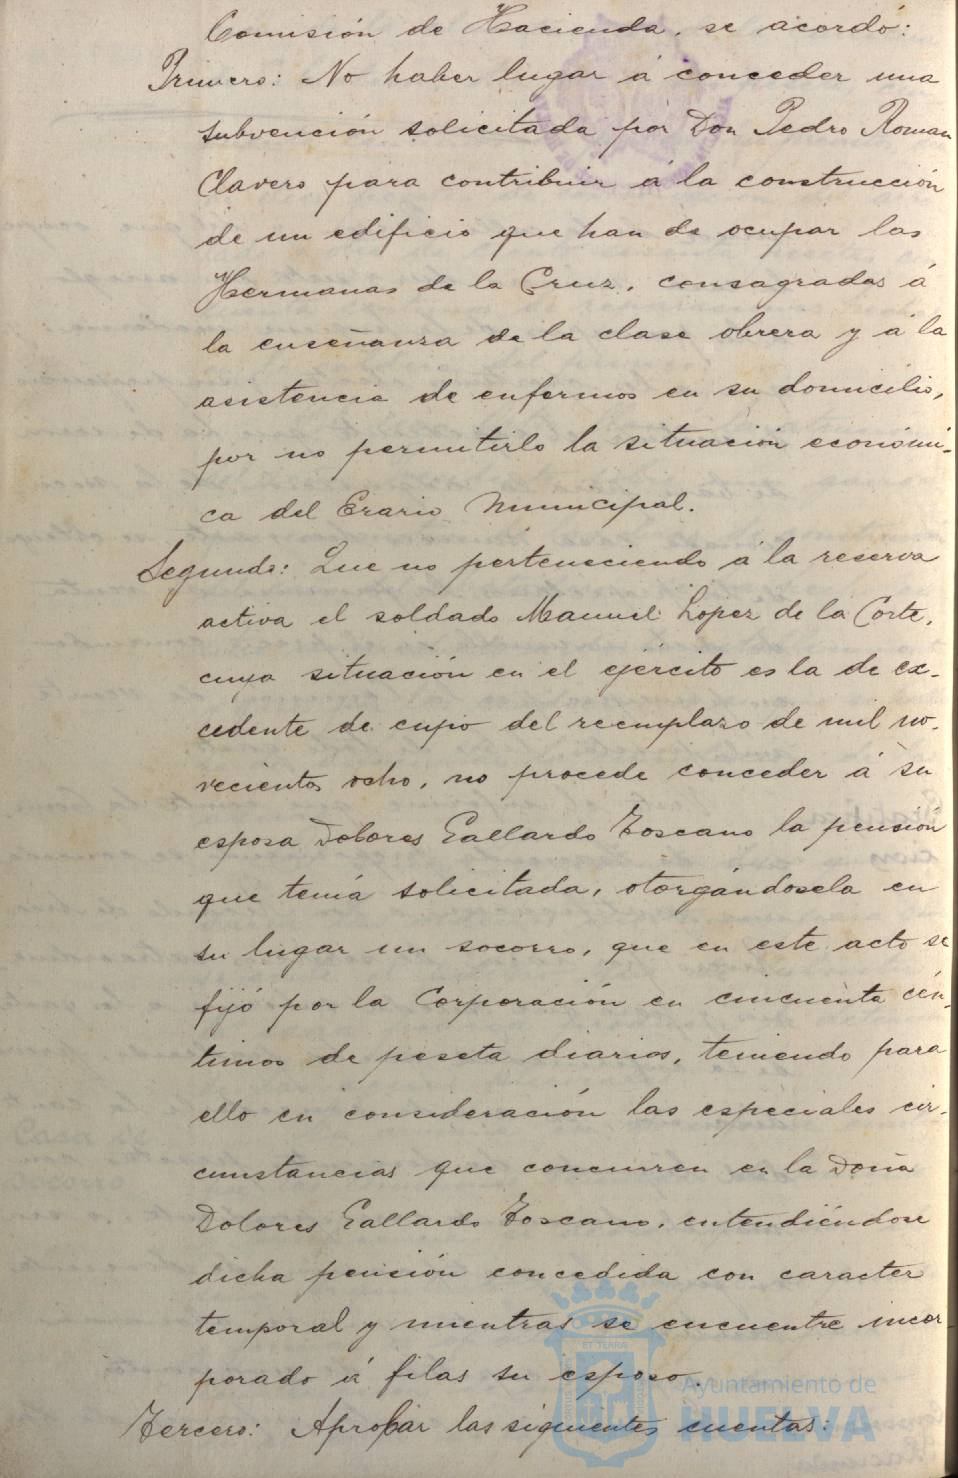 Comisión de Hacienda, se acordó:
Primero: No haber lugar á conceder una
subvención solicitada por Don Pedro Roman
Clavero para contribuir á la construcción
de un edificio que han de ocupar las
Hermanas de la Cruz, consagradas á
la enseñanza de la clase obrera y á la
asistencia de enfermos en su domicilio,
por no permitirlo la situación económi-
ca del Erario Municipal.
Segundo: Que no perteneciendo á la reserva
activa el soldado Manuel Lopez de la Corte,
cuya situación en el ejército es la de ex-
cedente de cupo del reemplazo de mil no-
vecientos ocho, no procede conceder á su
esposa Dolores Gallardo Toscano la pensión
que tenía solicitada, otorgándosela en
su lugar un socorro, que en este acto se
fijó por la Corporación en cincuenta cén-
timos de peseta diarios, teniendo para
ello en consideración las especiales cir-
cunstancias que concurren en la Doña
Dolores Gallardo Toscano, entendiéndose
dicha pensión concedida con caracter
temporal y mientras se encuentre incor
porado á filas su esposo.
Tercero: Aprobar las siguientes cuentas:
Ayuntamiento de
HUELVA